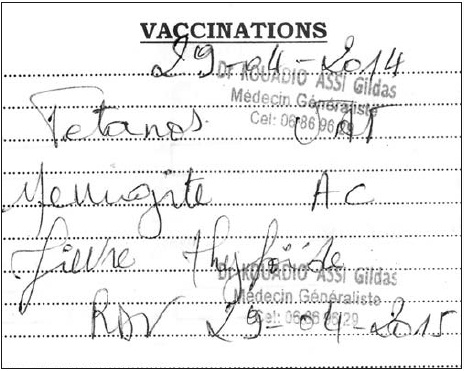 VACCINATIONS
29-04-2014
Dr KOUADIO ASSI Gildas
Médecin Généraliste
Cel: 06 86 96 29
Tetanos VAT
Meningite AC
fievre thyfoïde
Dr KOUADIO ASSI Gildas
Médecin Généraliste
Cel: 06 86 96 29
RDV 29-04-2015